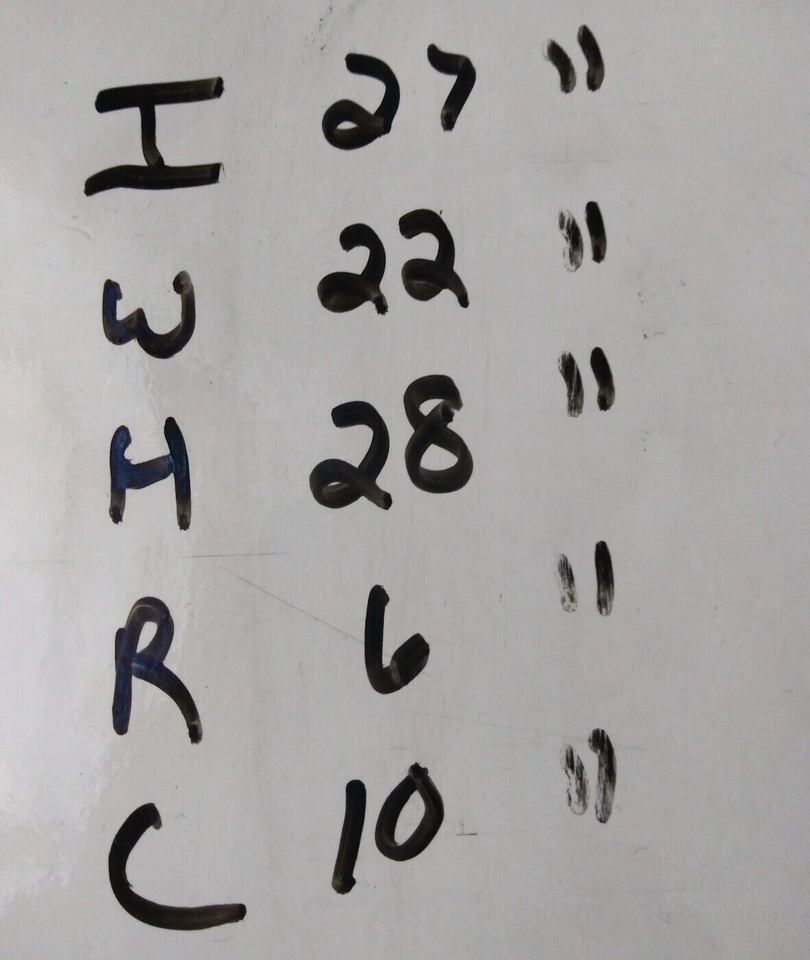 I 27 "
W 22 "
H 28 "
R 6 "
C 10 "